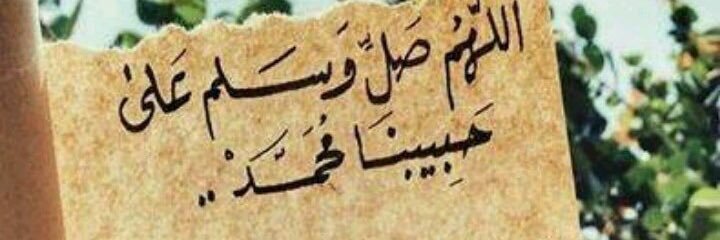 اللَّهُم صَلِّ وَسَلم عَلىٰ
حَبيبنَا مُحَمَّدْ..